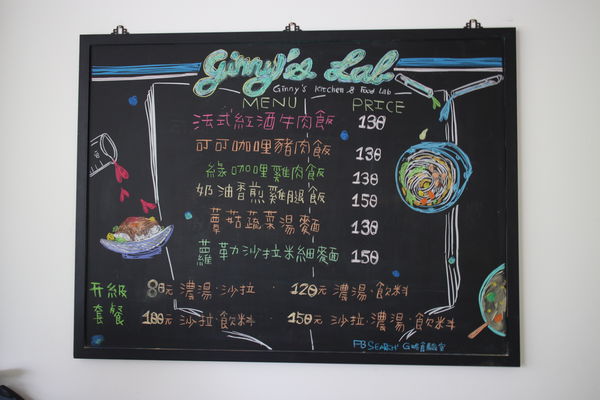 Ginny's Lab
Ginny's Kitchen & Food Lab
MENU PRICE
法式紅酒牛肉飯 130
可可咖哩豬肉飯 130
綠咖哩雞肉飯 130
奶油香煎雞腿飯 150
蘑菇蔬菜湯麵 130
蘿勒沙拉米細麵 150
升級套餐
80元 濃湯·沙拉 120元 濃湯·飲料
100元 沙拉·飲料 150元 沙拉·濃湯·飲料
FB SEARCH: G